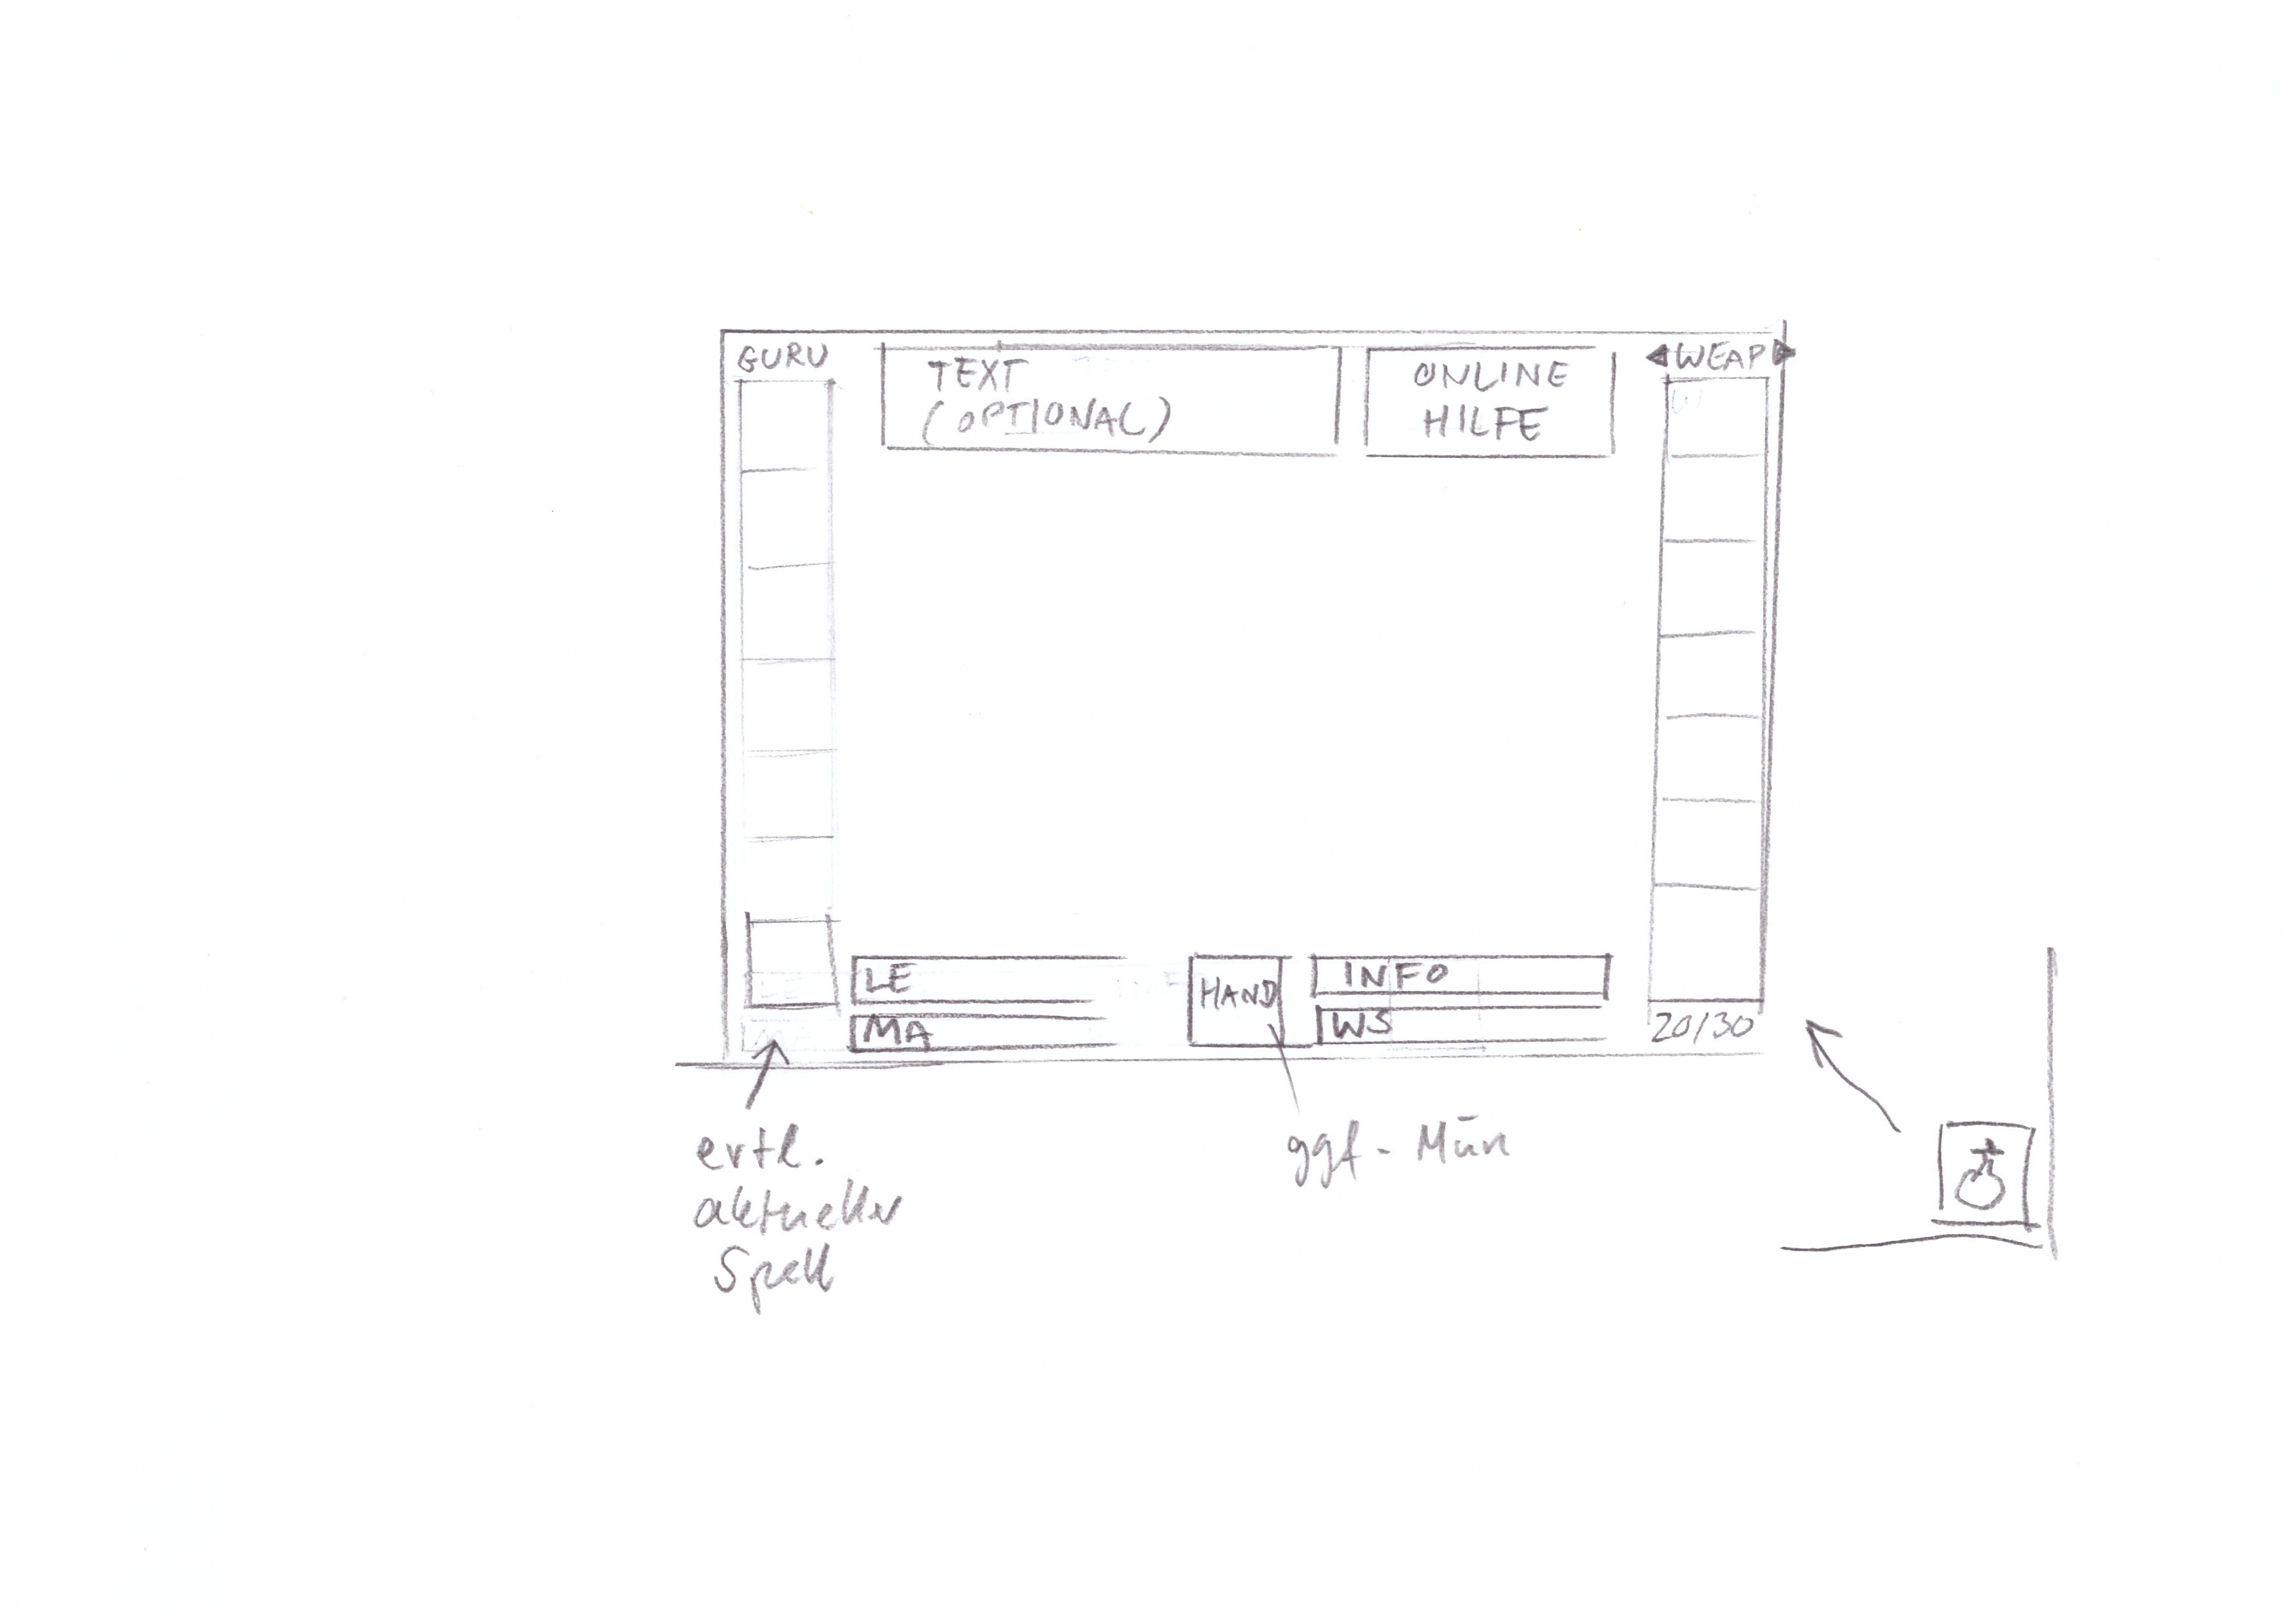 GURU
TEXT
(OPTIONAL)
ONLINE
HILFE
WEAP
LE
MA
HAND
INFO
WS
20/30
aktueller
Spell
ggf. Mun